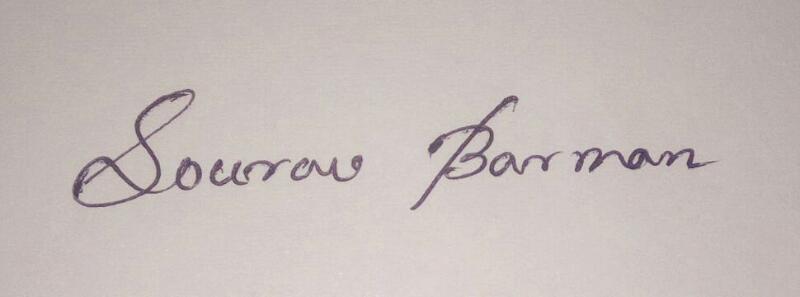 Sourav Barman